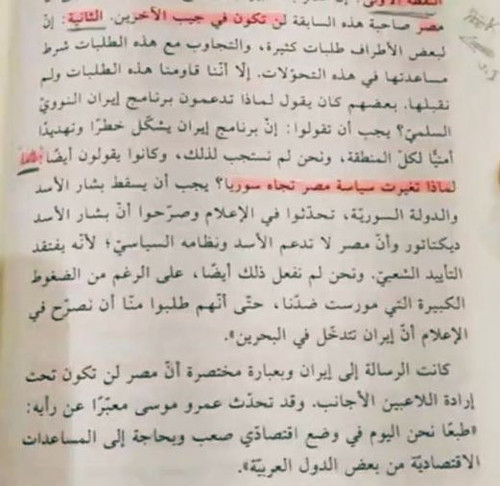 النقطة الأولى:
مصر صاحبة هذه السابقة لن تكون في جيب الآخرين. الثانية: إنّ
لبعض الأطراف طلبات كثيرة، والتجاوب مع هذه الطلبات شرط
مساعدتها في هذه التحوّلات. إلا أنّنا قاومنا هذه الطلبات ولم
نقبلها. بعضهم كان يقول لماذا تدعمون برنامج إيران النوويّ
السلميّ؟ يجب أن تقولوا: إنّ برنامج إيران يشكّل خطرًا وتهديدًا
أمنيًّا لكلّ المنطقة، ونحن لم نستجب لذلك، وكانوا يقولون أيضًا
لماذا تغيرت سياسة مصر تجاه سوريا؟ يجب أن يسقط بشار الأسد
والدولة السوريّة، تحدّثوا في الإعلام وصرّحوا أنّ بشار الأسد
ديكتاتور وأنّ مصر لا تدعم الأسد ونظامه السياسيّ؛ لأنّه يفتقد
التأييد الشعبيّ. ونحن لم نفعل ذلك أيضًا، على الرغم من الضغوط
الكبيرة التي مورست ضدّنا، حتّى أنّهم طلبوا منّا أن نصرّح في
الإعلام أنّ إيران تتدخّل في البحرين».
كانت الرسالة إلى إيران وبعبارة مختصرة أنّ مصر لن تكون تحت
إرادة اللاعبين الأجانب. وقد تحدّث عمرو موسى معبّرًا عن رأيه:
«طبعًا نحن اليوم في وضع اقتصادّي صعب وبحاجة إلى المساعدات
الاقتصاديّة من بعض الدول العربيّة».